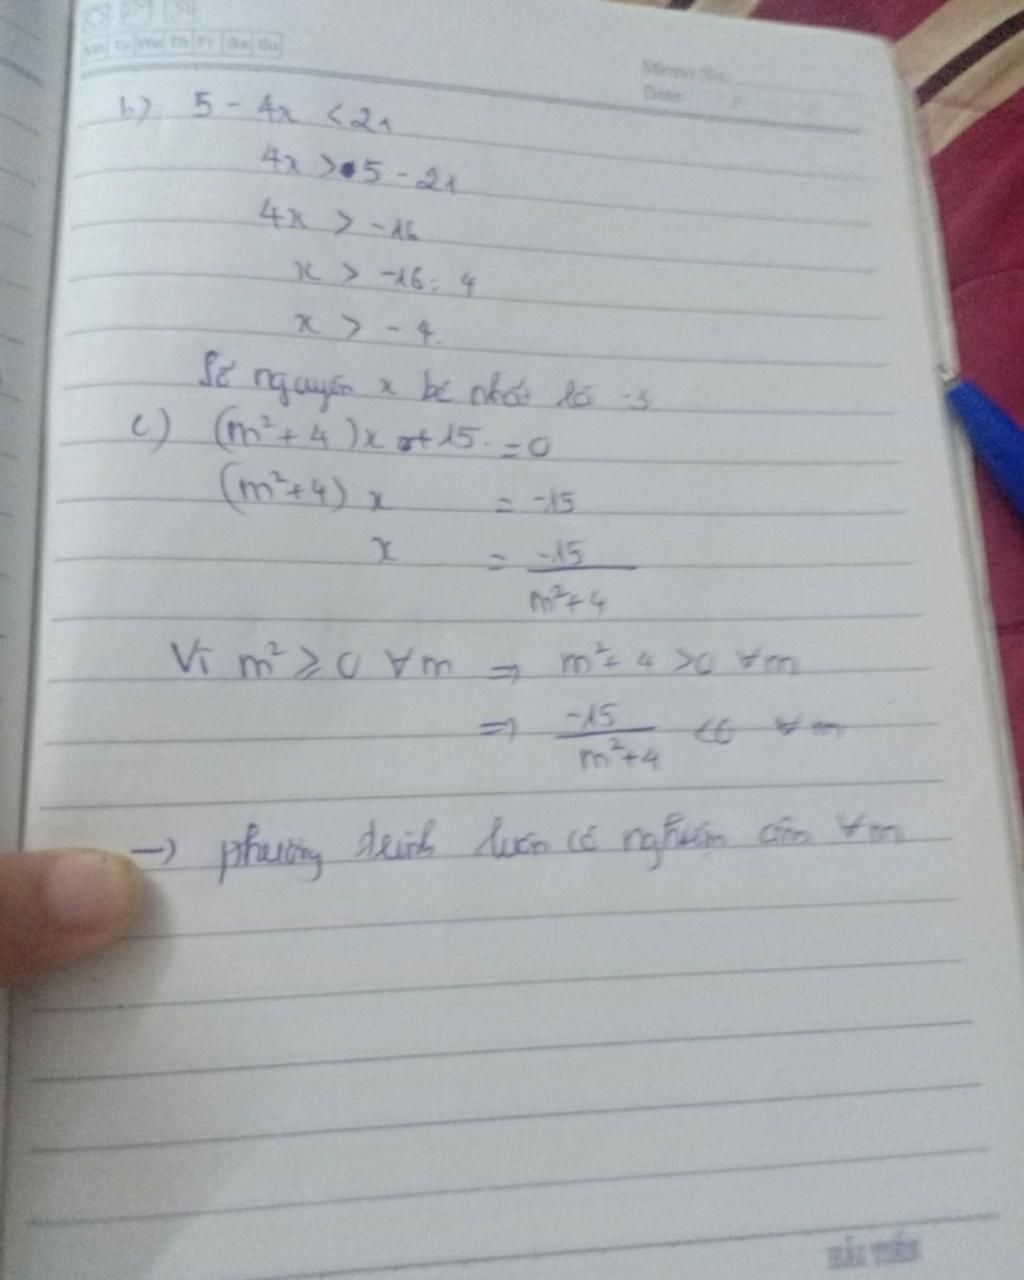 Mo Tu We Th Fr Sa Su
Memo No.
Date / /
b) 5 - 4x < 21
4x > 5 - 21
4x > -16
x > -16 : 4
x > -4.
Số nguyên x bé nhất là -3
c) (m² + 4)x + 15 = 0
(m² + 4) x = -15
x = -15 / m² + 4
Vì m² ≥ 0 ∀m ⇒ m² + 4 > 0 ∀m
⇒ -15 / m² + 4 < 0 ∀m
→ phương trình luôn có nghiệm âm ∀m
HẢI TIẾN